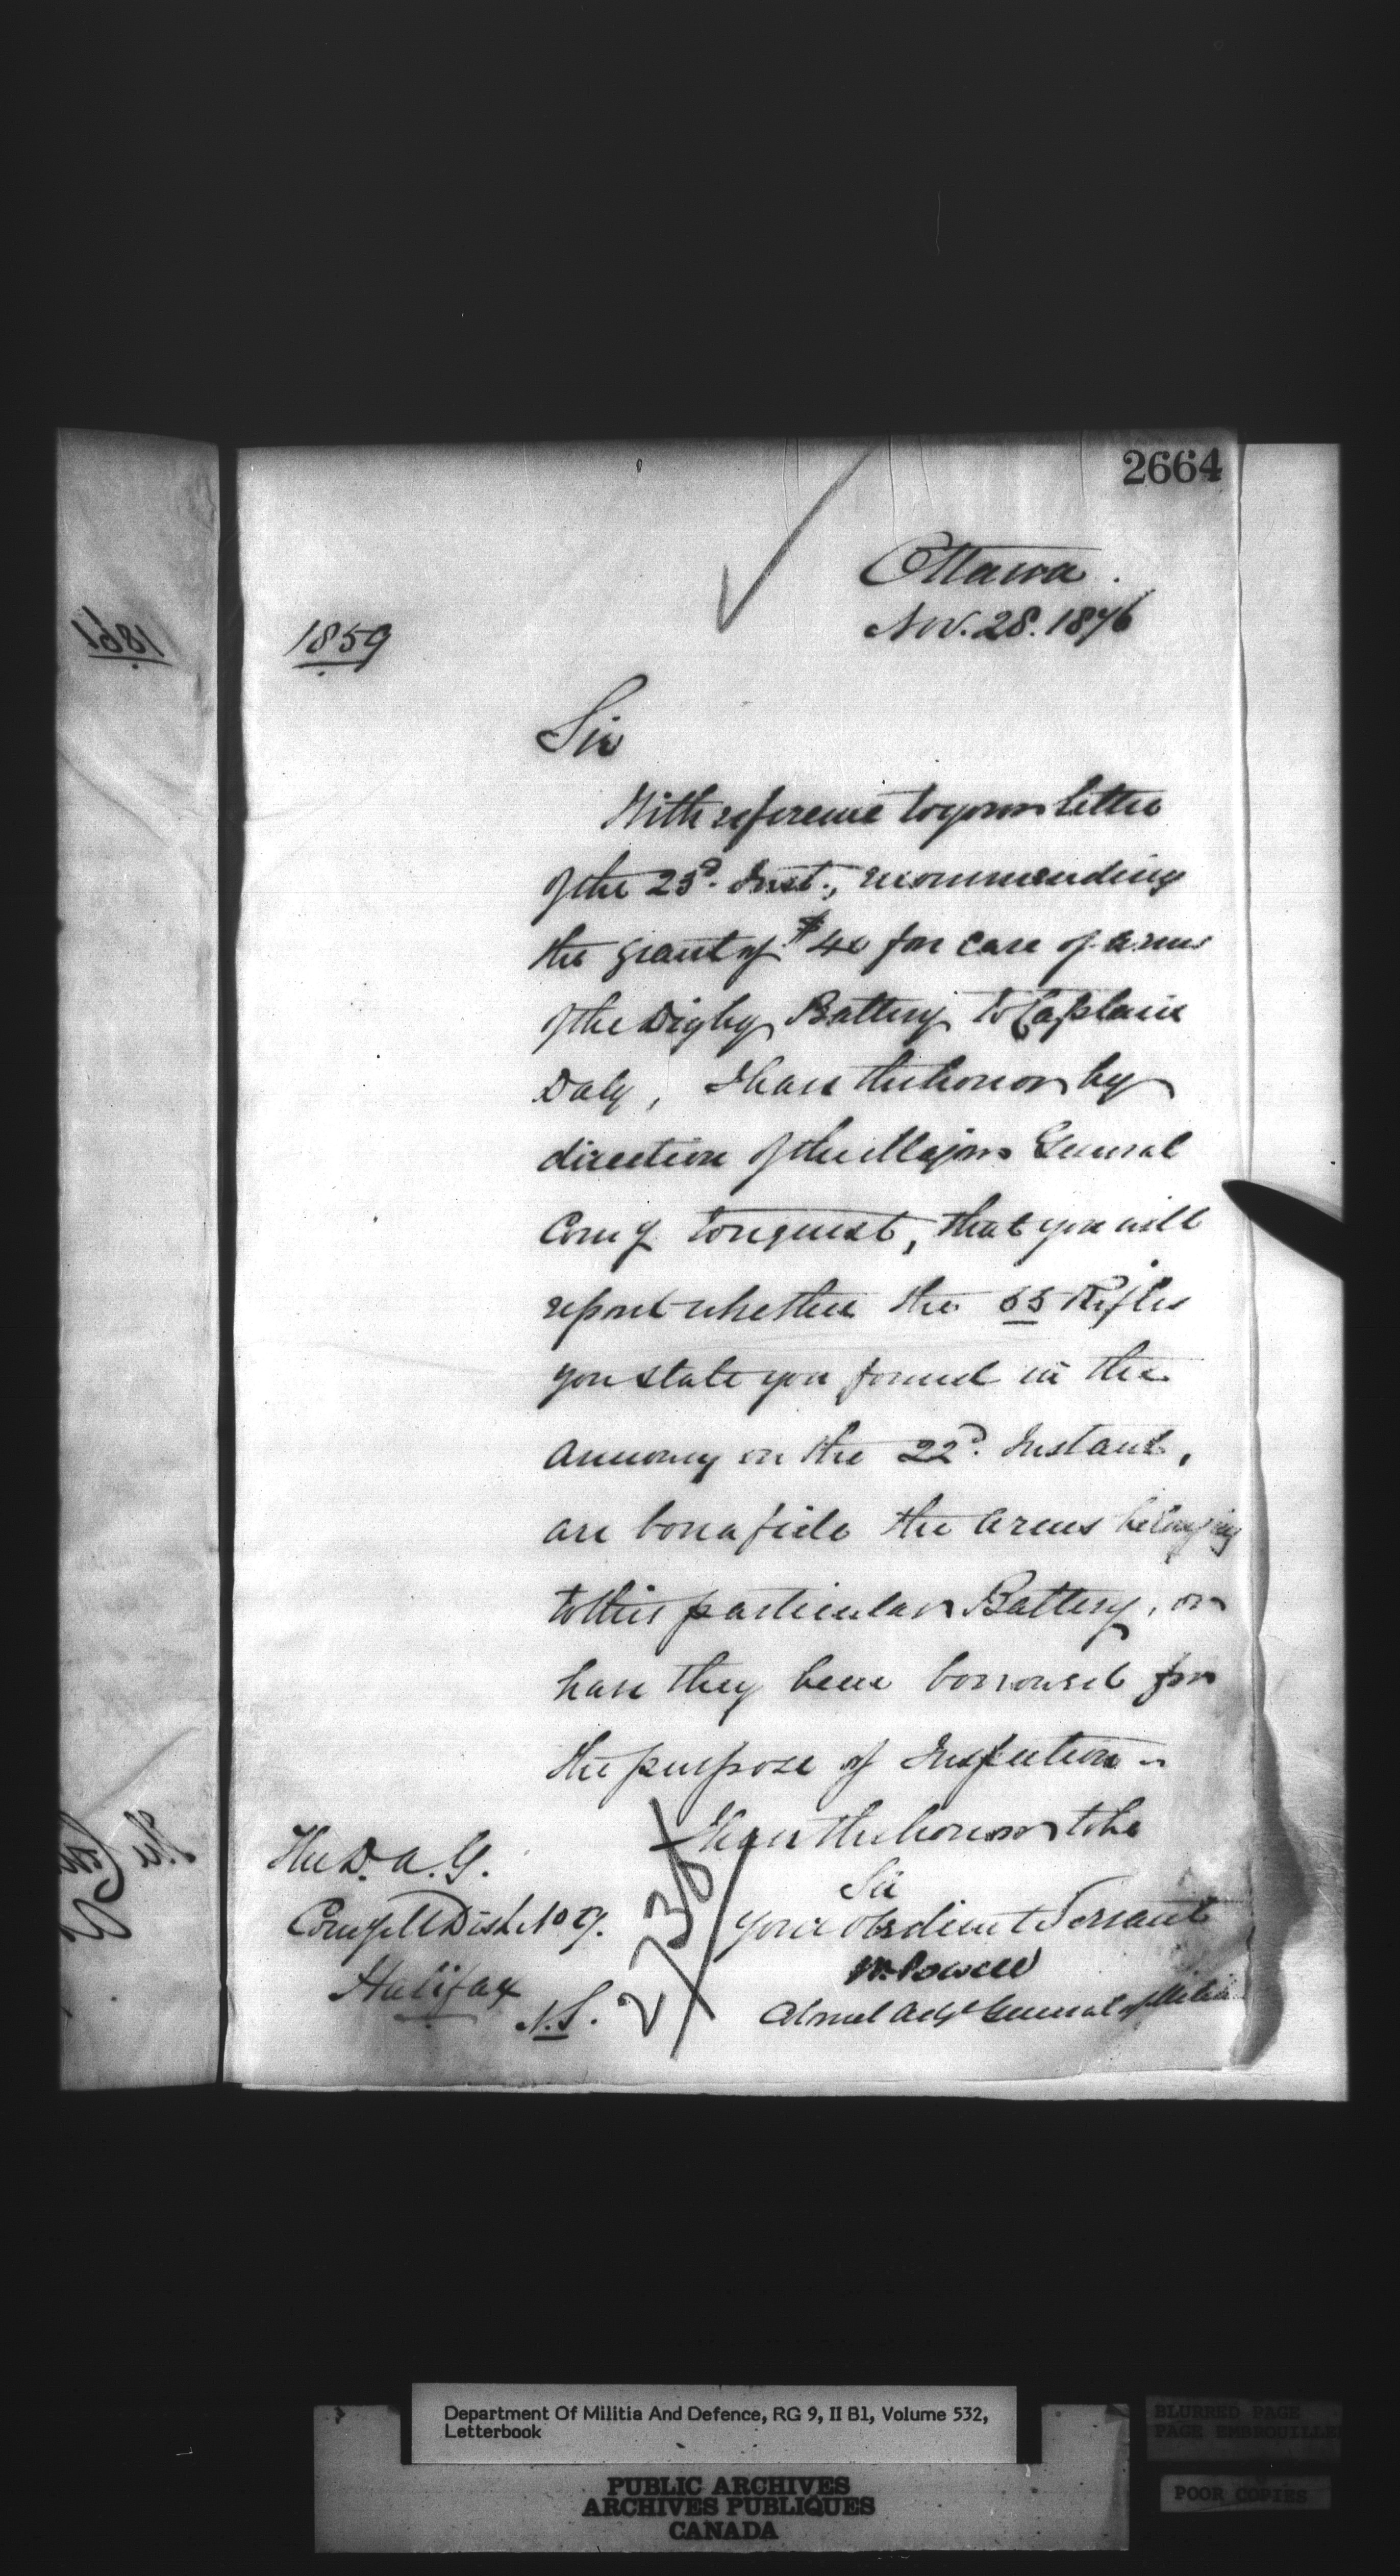 2664
Ottawa.
Nov. 28. 1876
1859
Sir
With reference to your letter
of the 23d. Inst., recommending
the grant of $40 for care of arms
of the Digby Battery to Captain
Daly, I have the honor by
direction of the Major General
Comg to request, that you will
report whether the 55 Rifles
you state you found in the
armory on the 22d. Instant,
are bona fide the arms belonging
to this particular Battery, or
have they been borrowed for
the purpose of Inspection -
I have the honor to be
Sir
Your obedient Servant
W. Powell
Colonel Adjt General of Militia
The D. A. G.
Comg M Dist. No 9.
Halifax
N.S.
Department Of Militia And Defence, RG 9, II B1, Volume 532,
Letterbook
PUBLIC ARCHIVES
ARCHIVES PUBLIQUES
CANADA
BLURRED PAGE
PAGE EMBROUILLEE
POOR COPIES